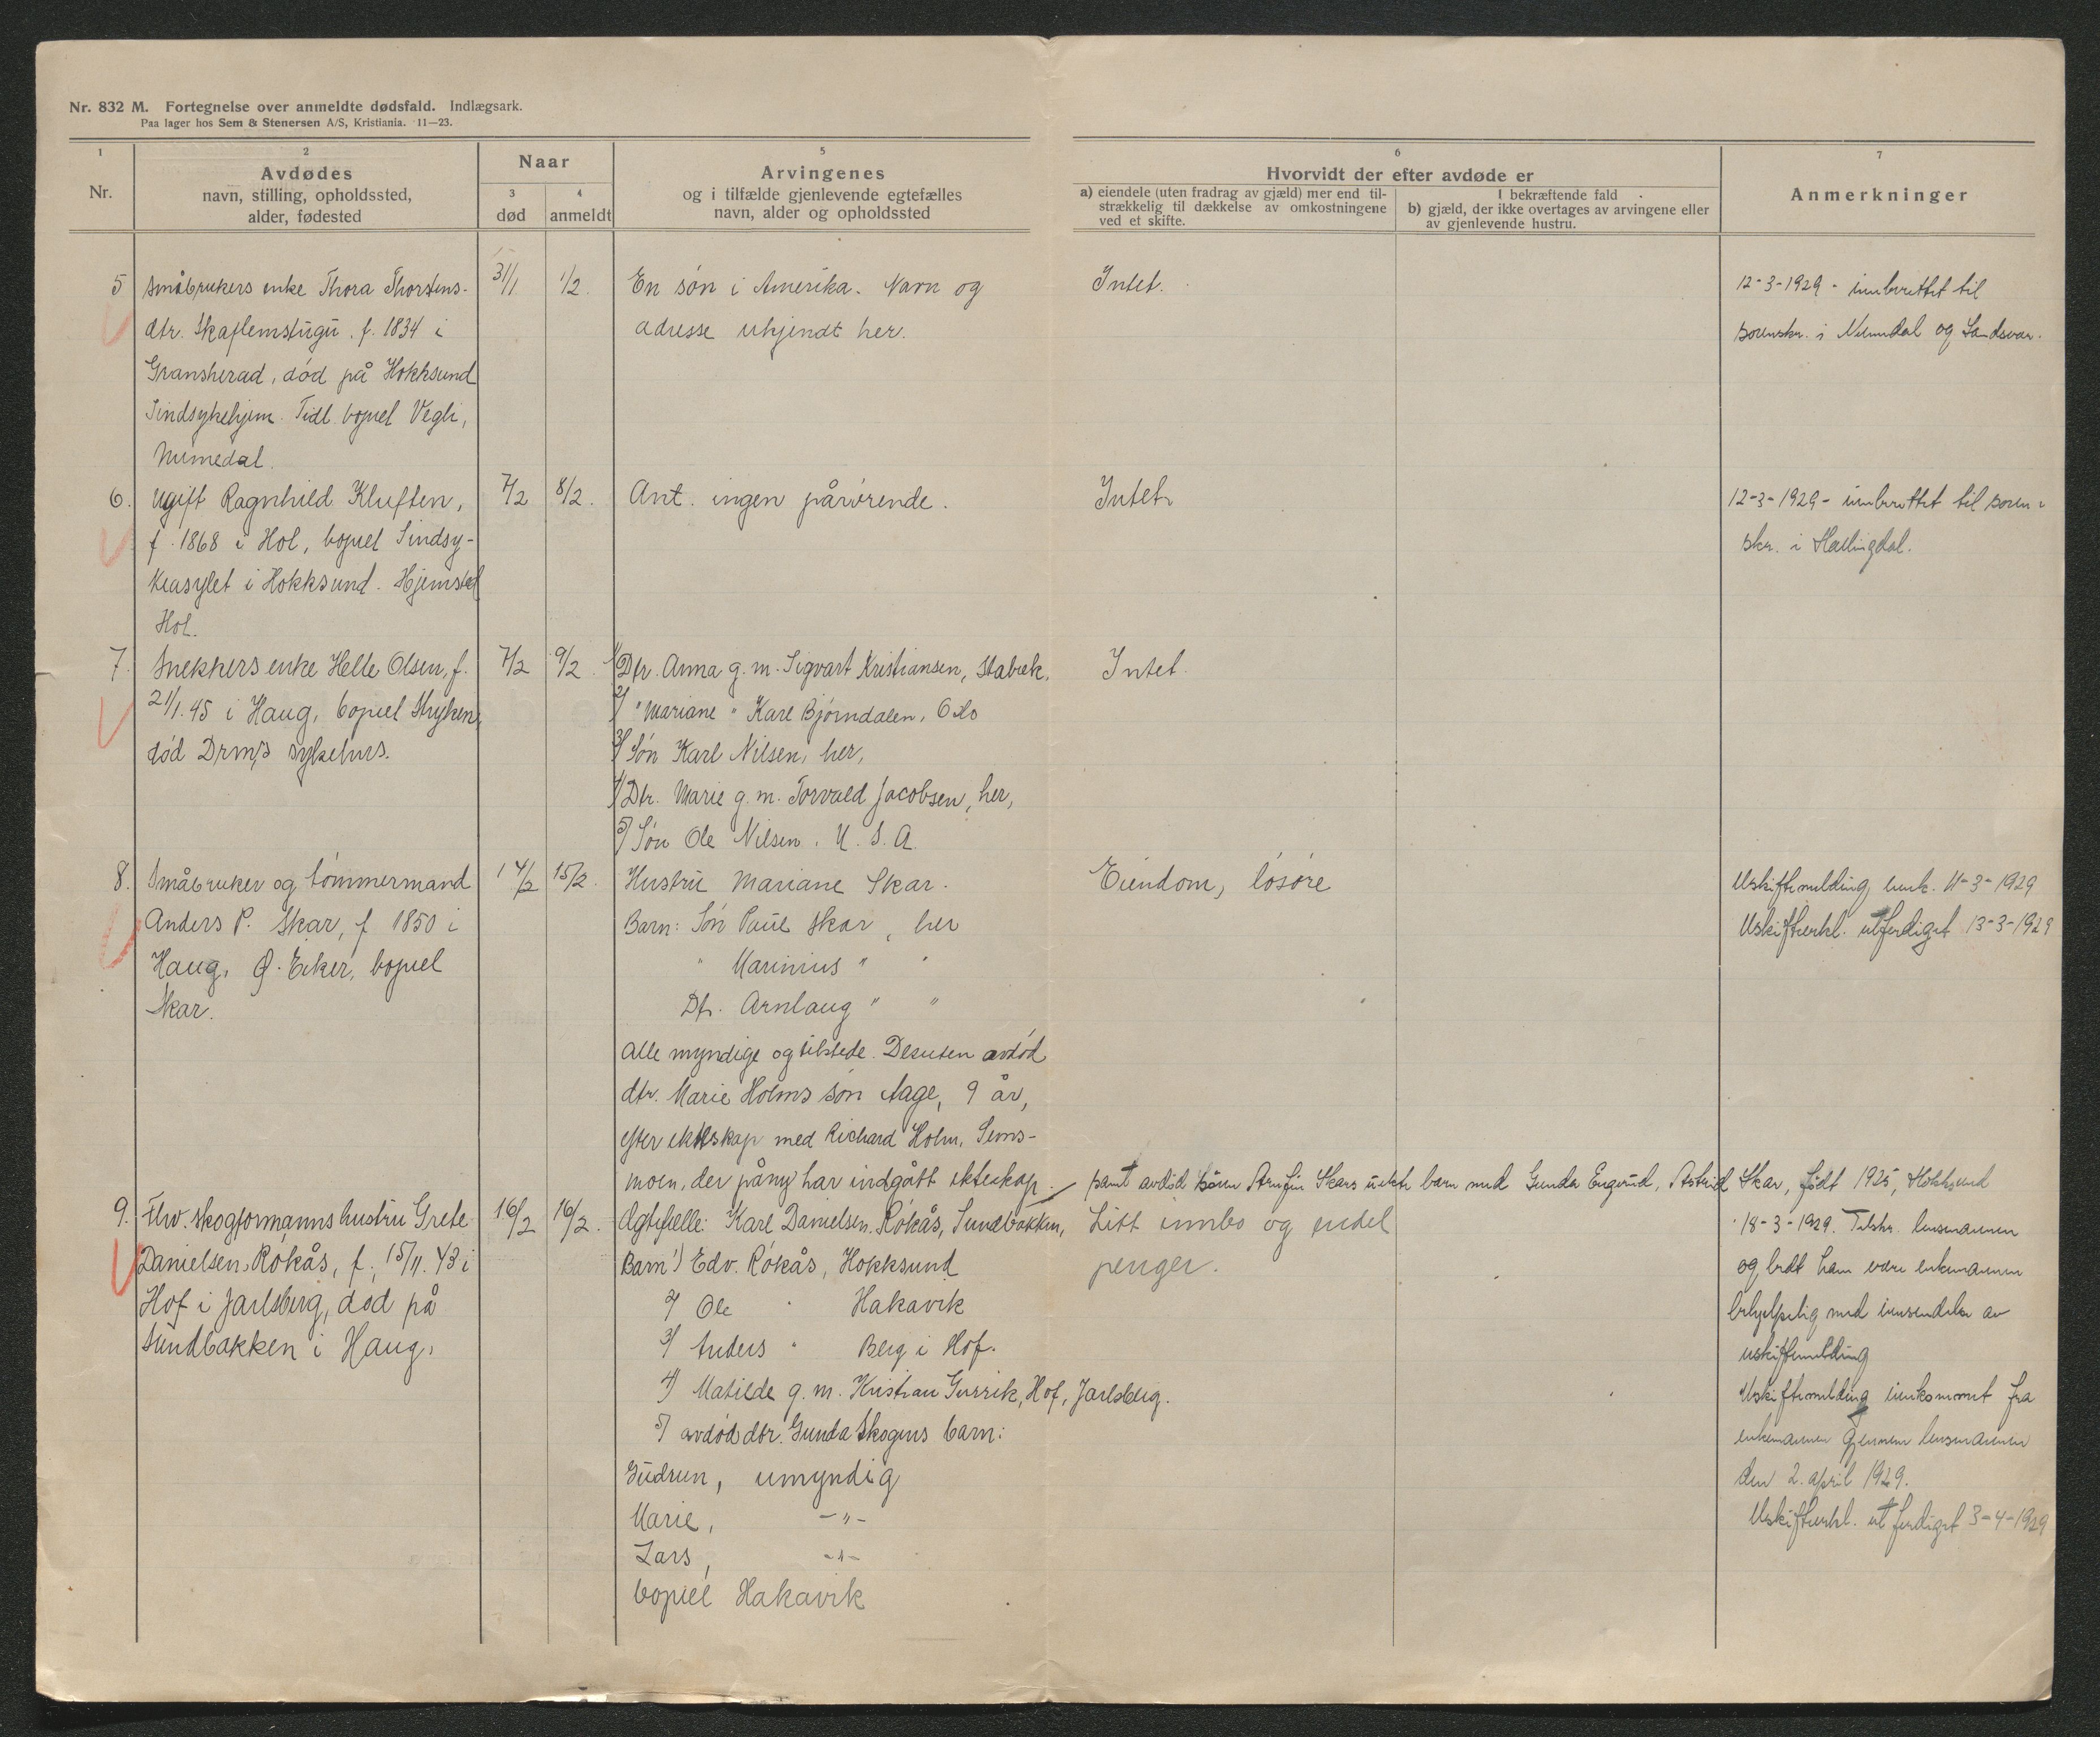 Nr. 832 M. Fortegnelse over anmeldte dødsfald. Indlægsark.
Paa lager hos Sem & Stenersen A/S, Kristiania. 11—23.
1
Nr.
2
Avdødes
navn, stilling, opholdssted,
alder, fødested
Naar
3
død
4
anmeldt
5
Arvingenes
og i tilfælde gjenlevende egtefælles
navn, alder og opholdssted
6
Hvorvidt der efter avdøde er
a) eiendele (uten fradrag av gjæld) mer end til-
strækkelig til dækkelse av omkostningene
ved et skifte.
I bekræftende fald
b) gjæld, der ikke overtages av arvingene eller
av gjenlevende hustru.
7
Anmerkninger
5
Småbrukers enke Thora Thorstens-
dtr. Skaflemstugu. f. 1834 i
Gransherad, død på Hokksund
Sindsykehjem. Tidl. bopæl Vegli,
Numedal.
31/1
1/2.
En søn i Amerika. Navn og
adresse ukjendt her.
Intet.
12-3-1929 - innberettet til
sorenskr. i Numedal og Sandsvær.
6.
Ugift Ragnhild Kluften,
f. 1868 i Hol, bopæl Sindsy-
keasylet i Hokksund. Hjemsted
Hol.
7/2
8/2.
Ant. ingen pårørende.
Intet
12-3-1929 - innberettet til soren-
skr. i Hallingdal.
7.
Snekkers enke Helle Olsen, f.
21/1.45 i Haug, bopæl Stryken,
død Drm's sykehus.
7/2
9/2.
1/ Dtr. Anna g. m. Sigvart Kristiansen, Stabæk,
2/ " Mariane " Karl Bjørndalen, Oslo
3/ Søn Karl Nilsen, her,
4/ Dtr. Marie g. m. Torvald Jacobsen, her,
5/ Søn Ole Nilsen. U. S. A.
Intet.
8.
Småbruker og tømmermand
Anders P. Skar, f 1850 i
Haug, Ø. Eiker, bopæl
Skar.
14/2
15/2.
Hustru Mariane Skar.
Barn: Søn Paul Skar, her
" Marinius " "
Dtr. Arnlaug " "
Alle myndige og tilstede. Desuten avdød
dtr. Marie Holms søn Aage, 9 år,
efter ekteskap med Richard Holm, Sems-
moen, der påny har indgått ekteskap.
samt avdød sønn Arnfin Skars uekte barn med Gunda Engerud, Astrid Skar, født 1925, Hokksund
Eiendom, løsøre
Uskiftemelding innk. 11-3-1929
Uskifteerkl. utferdiget 13-3-1929
9.
Fhv. skogformanns hustru Grete
Danielsen Røkås, f. 15/11. 43 i
Hof i Jarlsberg, død på
Sundbakken i Haug.
16/2
16/2.
Ægtefælle: Karl Danielsen Røkås, Sundbakken,
Barn 1) Edv. Røkås, Hokksund
2/ Ole " Hakavik
3/ Anders " Berg i Hof.
4) Matilde g. m. Kristian Gursik, Hof, Jarlsberg.
5/ avdød dtr. Gunda Skogens barn:
Gudrun, umyndig
Marie, -"-
Lars, -"-
bopæl Hakavik
Litt innbo og endel
penger.
18-3-1929. Tilskr. lensmannen
og bedt ham være enkemannen
behjelpelig med innsendelse av
uskiftemelding
Uskiftemelding innkommet fra
enkemannen gjennem lensmannen
den 2. april 1929.
Uskifteerkl. utferdiget 3-4-1929